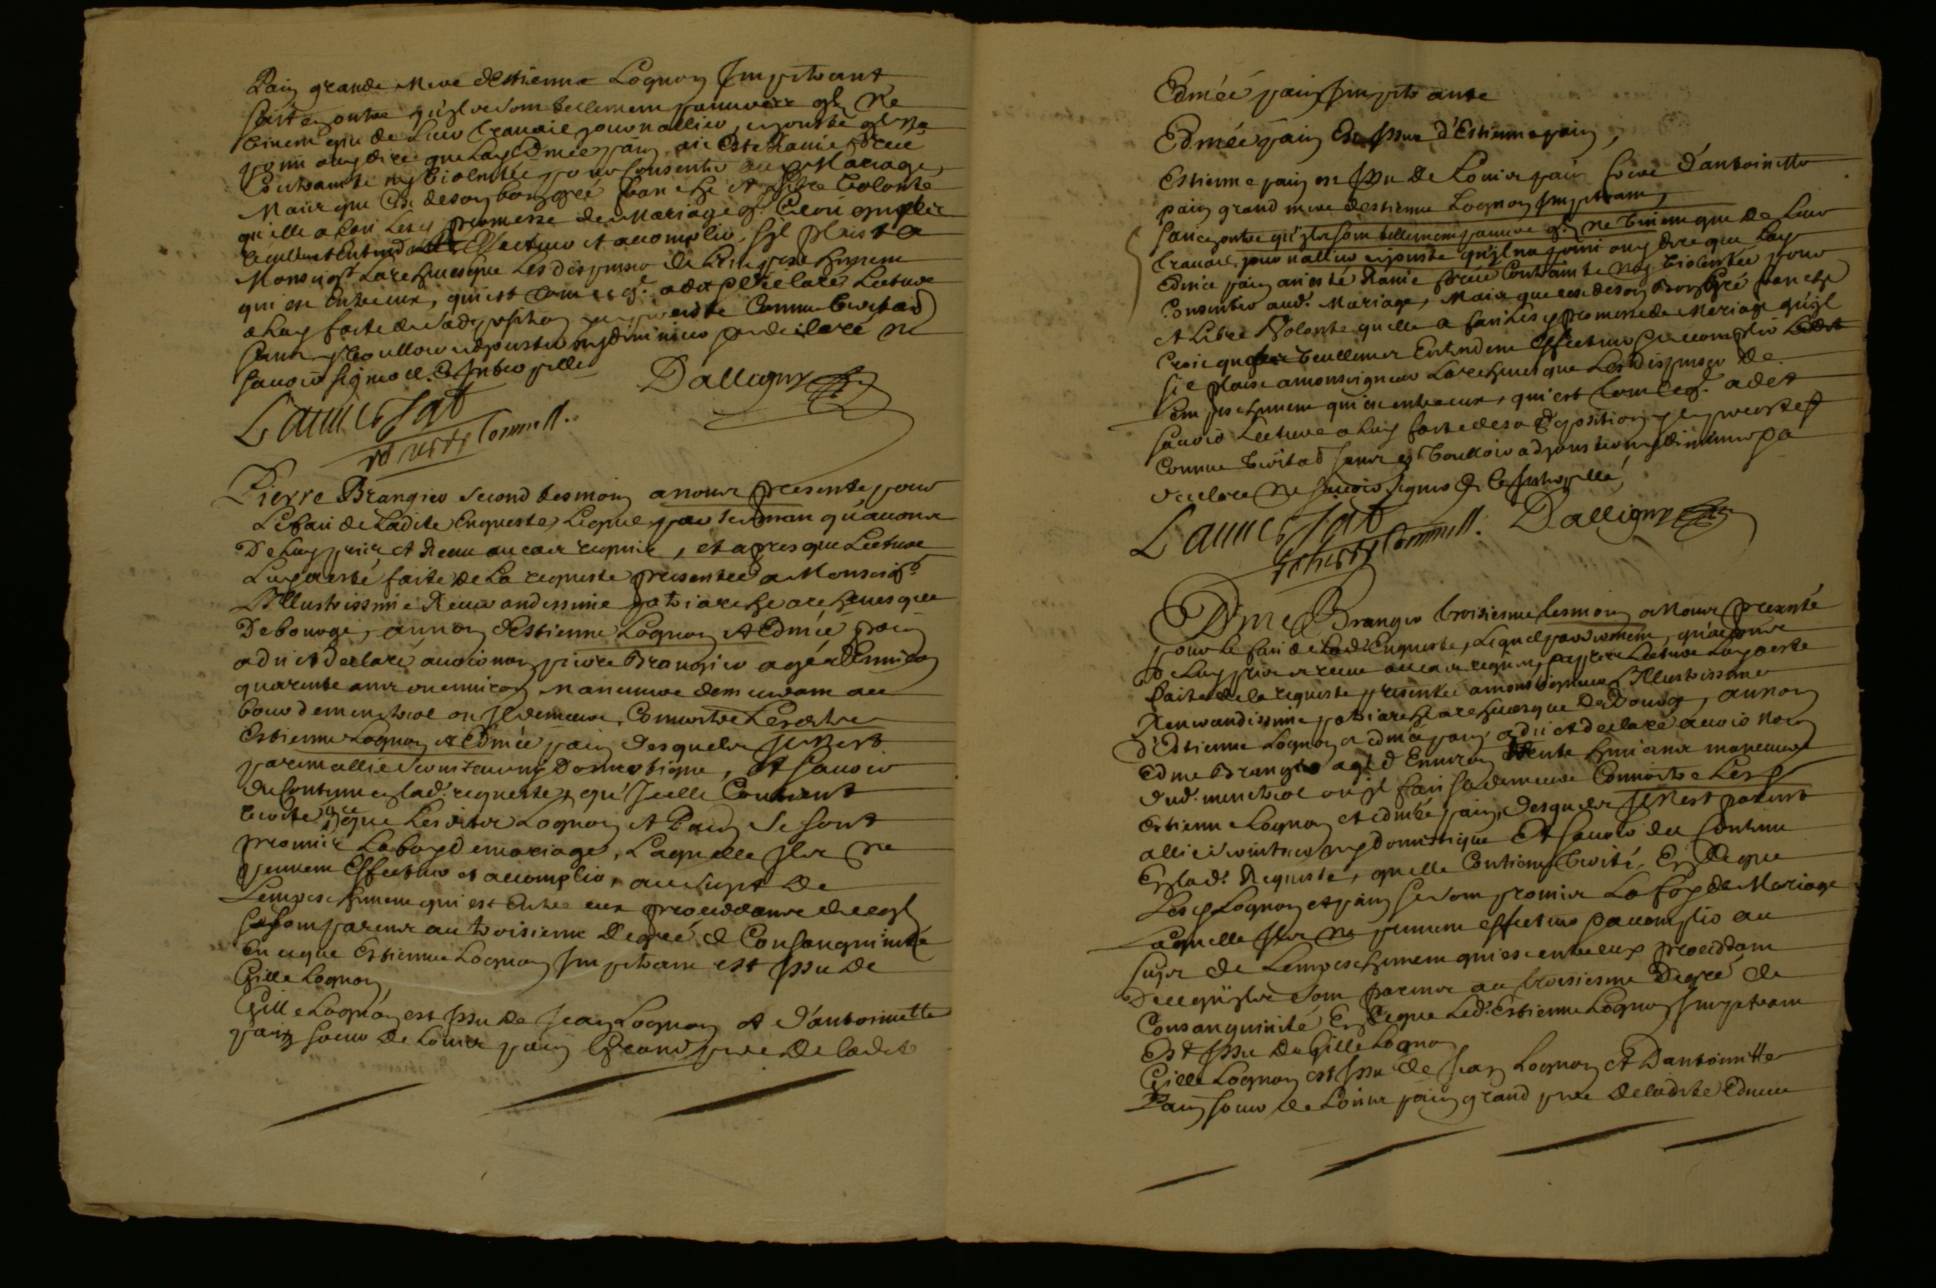 Pain grande Mere d'Estienne Lognon Impetrant
sait en outre qu'ils sont tellement pauvres qls ne
vivent que de leur travail journallier, ajouste qls na
point ouy dire que lad Edmee pain aie esté Ravie forcee
Contrainte ny Violentée pour consentir aud. Mariage,
Mais que C'est de son bon gré franche et libre Volonté
qu'elle a fait Lesd promesse de Mariage ql Croit qu'elle
veullent Entend Effectuer et acomplir, s'yl plaist a
Monseigr Larchevesque Les dispenser de L'empeschement
qui est entre eux, qui est tout ce ql a dit Lecture
a Luy faite de sa deposition y a persisté Comme Veritab
sans y voulloir adjouster ny diminuer a declaré ne
savoir signer de ce Interpellé
Dalligny
Commiss.
Pierre Brangier Second tesmoin a nous presenté pour
Le fait de Ladite Enqueste, Lequel par serment qu'avons
De Luy pris et Receu au cas requis, et apres que Lecture
Luy a esté faite de La requeste presentee a Monseigr
L'Illustrissime Reverandissime patriarche archevesque
De bourge, au nom d'Estienne Lognon et Edmée pain
a dit et declaré avoir nom pierre Brangier agé d'Environ
quarente ans ou environ Maneuvre demeurant au
bourg de menetreol ou Il demeure, Connoitre Lesdits
Estienne Lognon et Edmée pain desquels Il n'est
parent allié Serviteur ny Domestique, et savoir
du Contenu en lad. requeste, qu'Icelle Contient
verité que Lesdits Lognon et Pain Se sont
promis La foy de mariage, Laquelle Ils ne
peuvent Effectuer et acomplir, au sujet de
L'empeschement qui est Entre eux procedant de ce qls
Sont parens au troisiesme Degré de Consanguinité
En ce que Estienne Lognon Impetrant est Issu de
Gille Lognon
Gille Lognon est Issu de Jean Lognon et d'antoinette
pain soeur de Louis pain Grand pere de ladite
Edmée pain Impetrante
Edmée pain Est Issue d'Estienne pain,
Estienne pain est Issu de Louis pain frere d'antoinette
pain grand mere d'estienne Lognon Impetrant,
Sait en outre qu'ils sont tellement pauvre ql ne Vivent que de Leur
travail journallier ajouste qu'yl na point ouy dire que Lad
Edmée pain ait esté Ravie forcee Contrainte ny Violentée pour
Consentir aud. Mariage, Mais que c'est de son Bon Gré franche
et Libre Volonté qu'elle a fait Lesd promesse de Mariage qu'yl
Croit qu'ils veullent Entendent Effectuer et acomplir
s'il plaise a monseigneur Larchevesque Les dispenser de
L'empeschement qui est entre eux, qui est tout ce ql a dit
savoir Lecture a Luy faite de sa deposition y a persisté
Comme Veritab sans y Voulloir adjouster ny diminuer a
declaré ne savoir signer de ce Interpellé,
Commiss. Dalligny
Edme Brangier troisiesme tesmoin a Nous presenté
pour le fait de Lad. Enqueste, Lequel par serment, qu'avons
De Luy pris et receu au cas requis, et apres Lecture Luy a esté
faite de la requeste presentée a monseigneur L'Illustrissime
Reverandissime patriarche archevesque De Bourg, au nom
d'Estienne Lognon et Edmée pain, a dit et declaré avoir nom
Edme Brangier agé d'Environ trente huit ans maneuvre
dud. menetreol ou yl fait sa demeure Connoitre Lesd
Estienne Lognon et Edmée pain, desquels Il n'est parent
allié serviteur ny domestique Et Savoir du Contenu
En lad. Requeste, qu'elle Contient Verité, En ce que
Lesd Lognon et pain se sont promis La foy de Mariage
Laquelle Ils ne peuvent effectuer et acomplir au
sujet de L'empeschement qui est entre eux procedant
De ce qu'yls Sont parens au troisiesme Degré de
Consanguinité En ce que Led. Estienne Lognon Impetrant
Est Issu de Gille Lognon
Gille Lognon est Issu de Jean Lognon et D'antoinette
Pain soeur de Louis pain grand pere de ladite Edmee